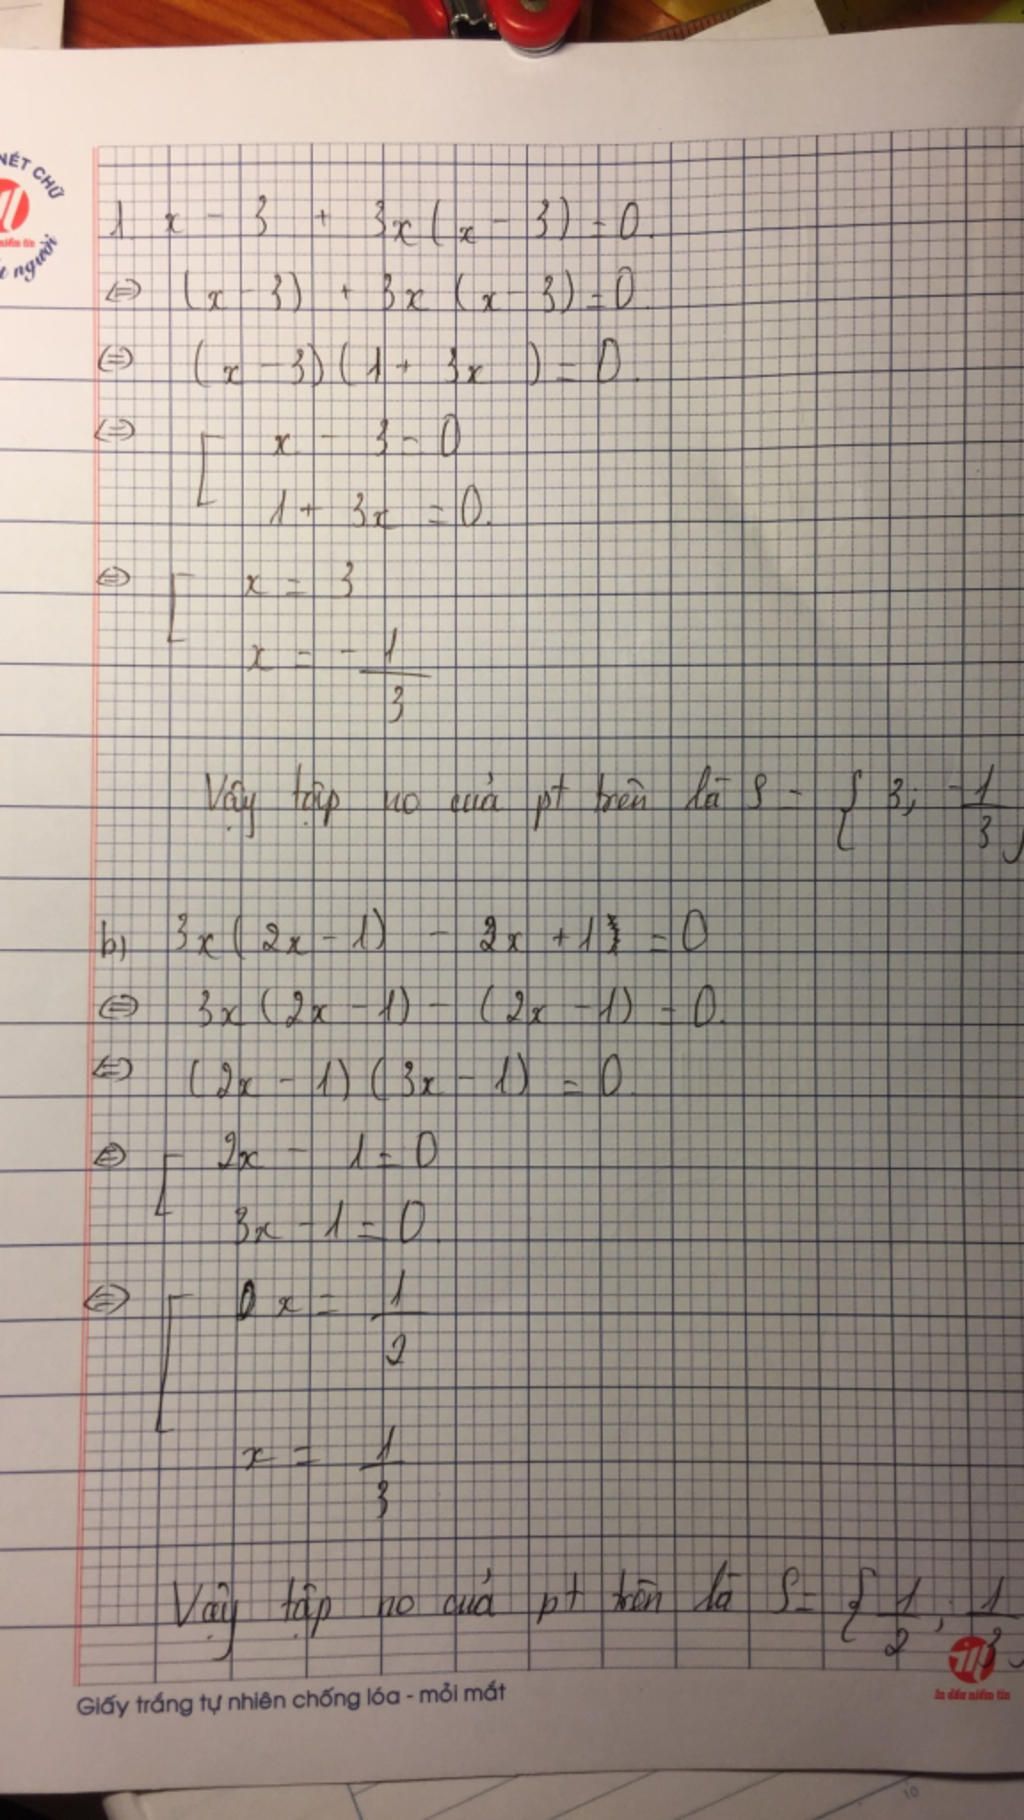 NÉT CHỮ
người
1 x - 3 + 3x(x - 3) = 0.
⇔ (x - 3) + 3x (x - 3) = 0.
⇔ (x - 3)(1 + 3x ) = 0.
⇔ [ x - 3 = 0
1 + 3x = 0.
⇔ [ x = 3
x = - 1/3
Vậy tập no của pt trên là S = { 3; -1/3 }
b) 3x(2x - 1) - 2x + 1 = 0
⇔ 3x(2x - 1) - (2x - 1) = 0.
⇔ (2x - 1)(3x - 1) = 0.
⇔ [ 2x - 1 = 0
3x - 1 = 0
⇔ [ x = 1/2
x = 1/3
Vậy tập no của pt trên là S = { 1/2 ; 1/3 }
In dấu niềm tin
Giấy trắng tự nhiên chống lóa - mỏi mắt
10